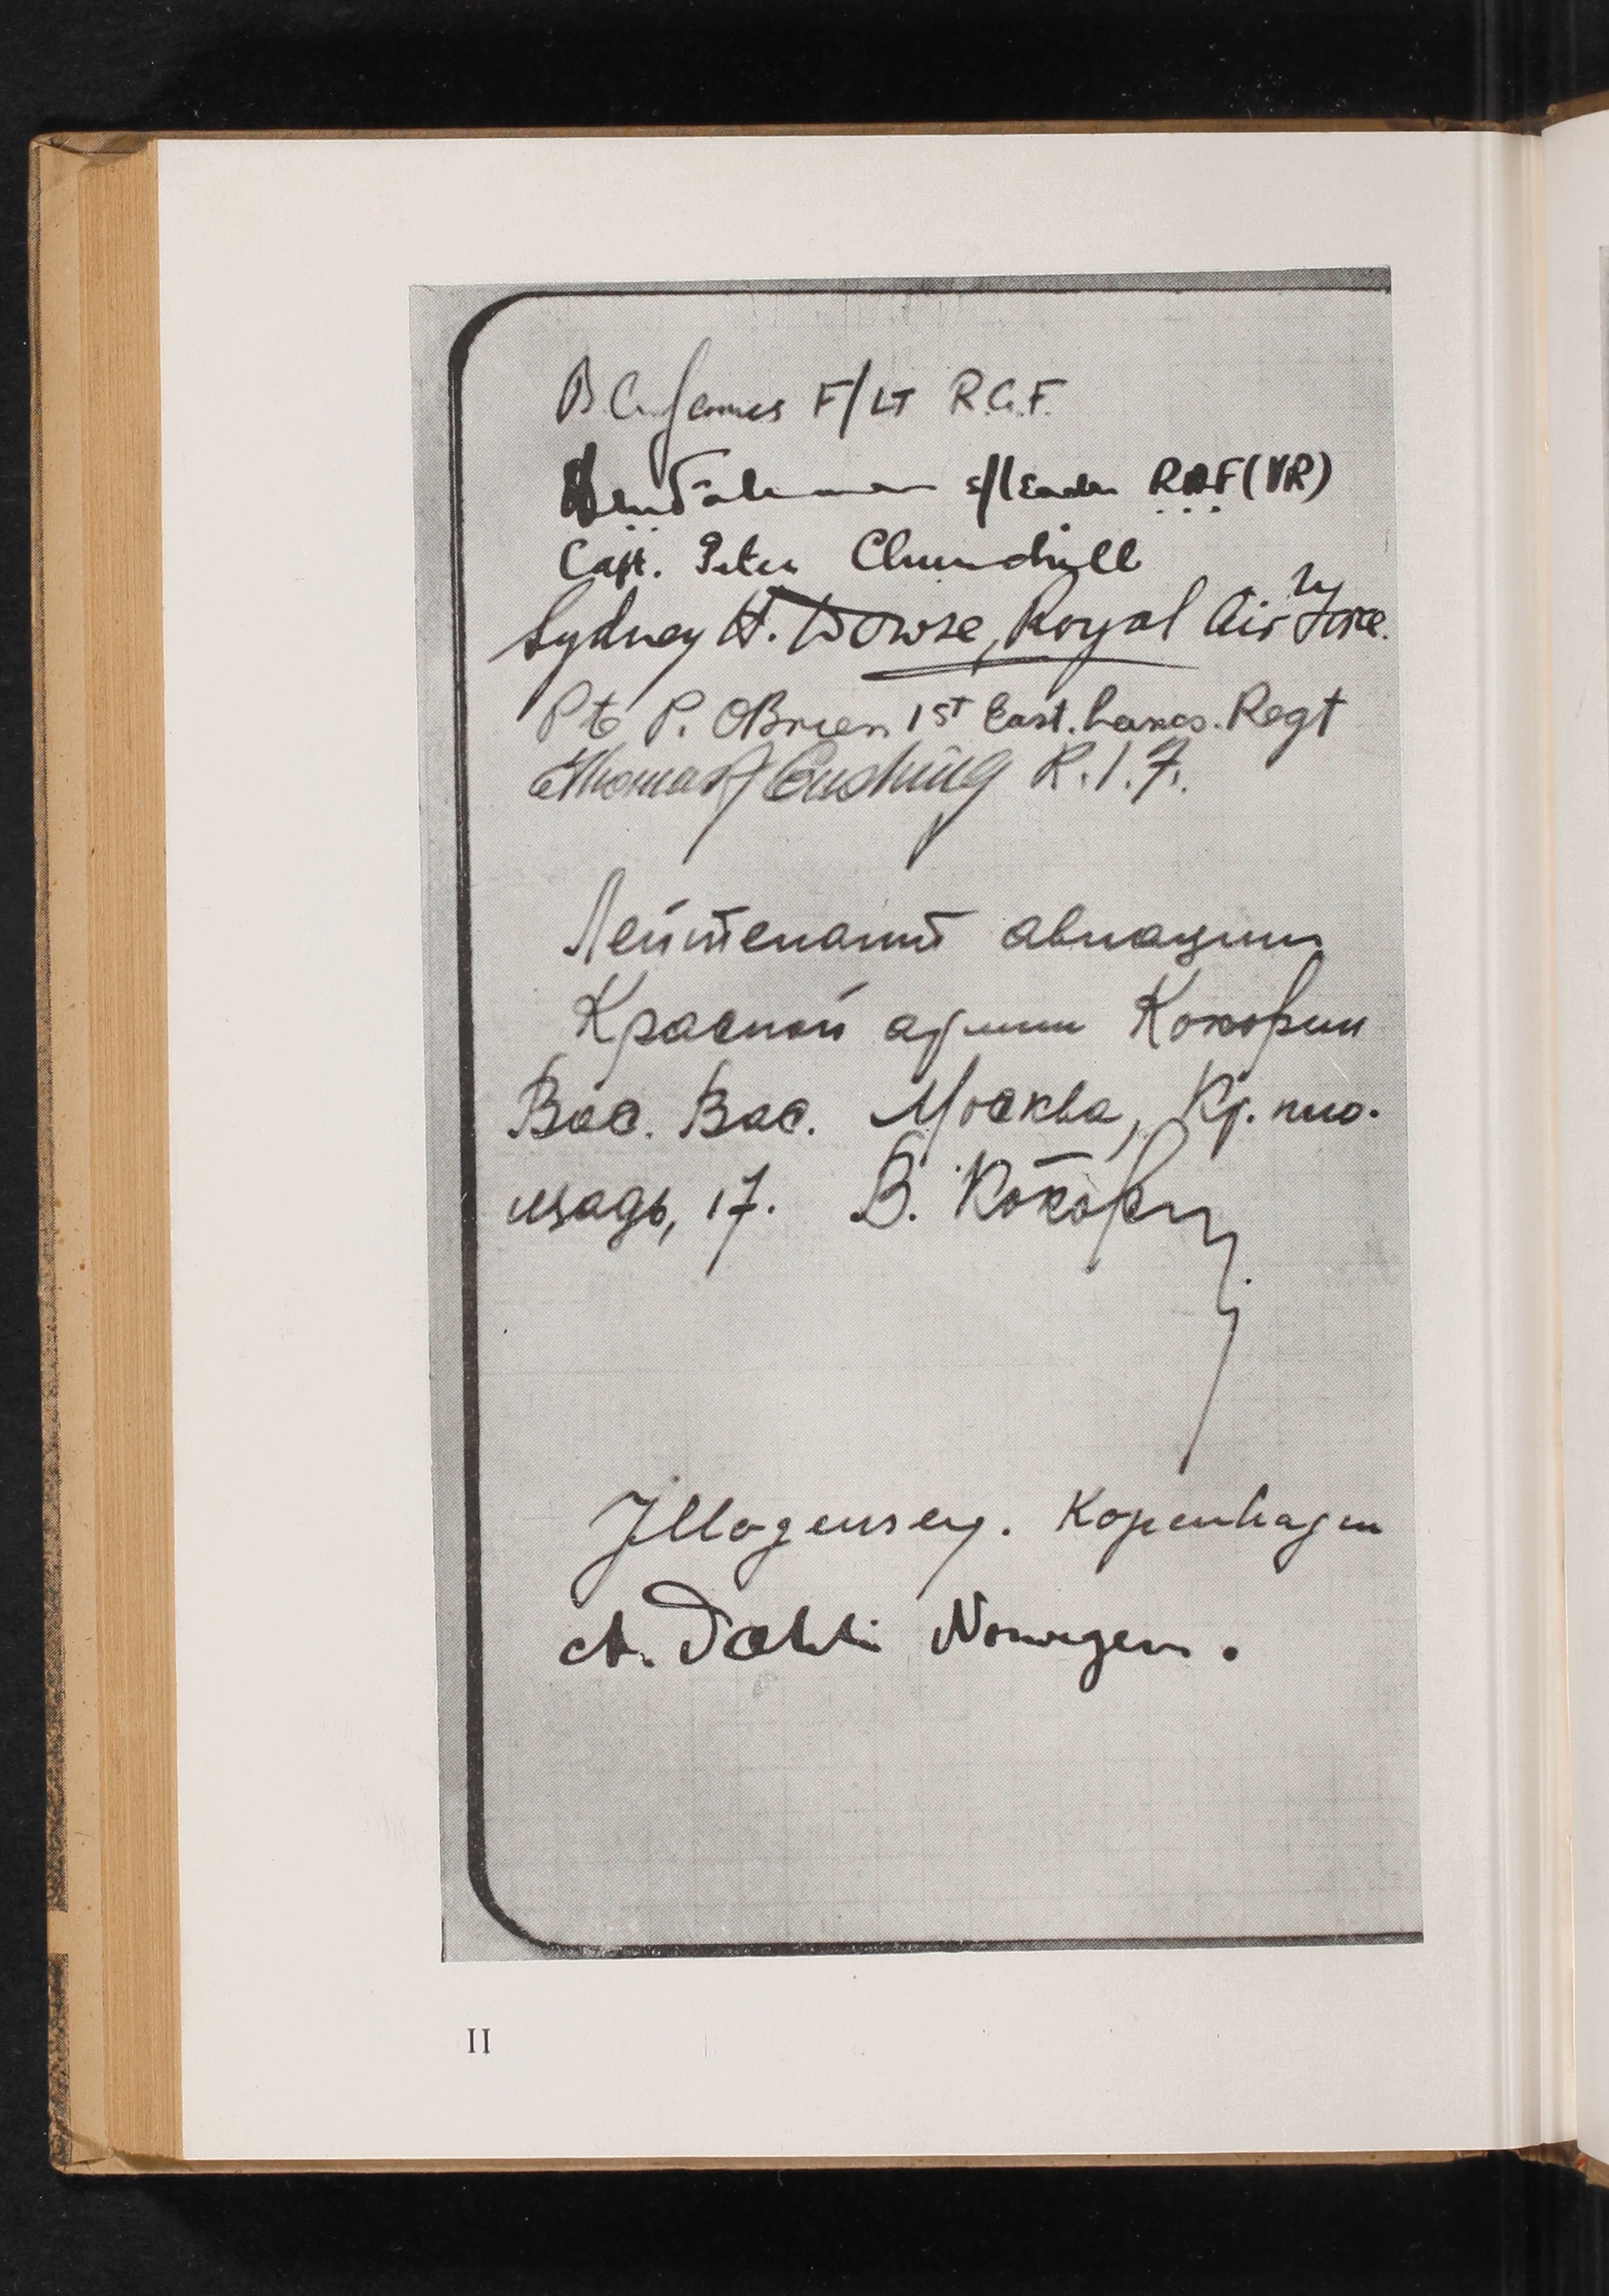 B.A. James F/LT R.A.F.
S/Leader RAF (VR)
Capt. Peter Churchill
Sydney H. Dowse, Royal Air Force.
Pte P. OBrien 1st East. Lancs. Regt
Thomas J Cushing R.I.F.
Лейтенант авиации
Красной армии Кокорин
Вас. Вас. Москва, Кр. пло-
щадь, 17. В. Кокорин
J Mogensen. Kopenhagen
A. Dæhli Norwegen.
II